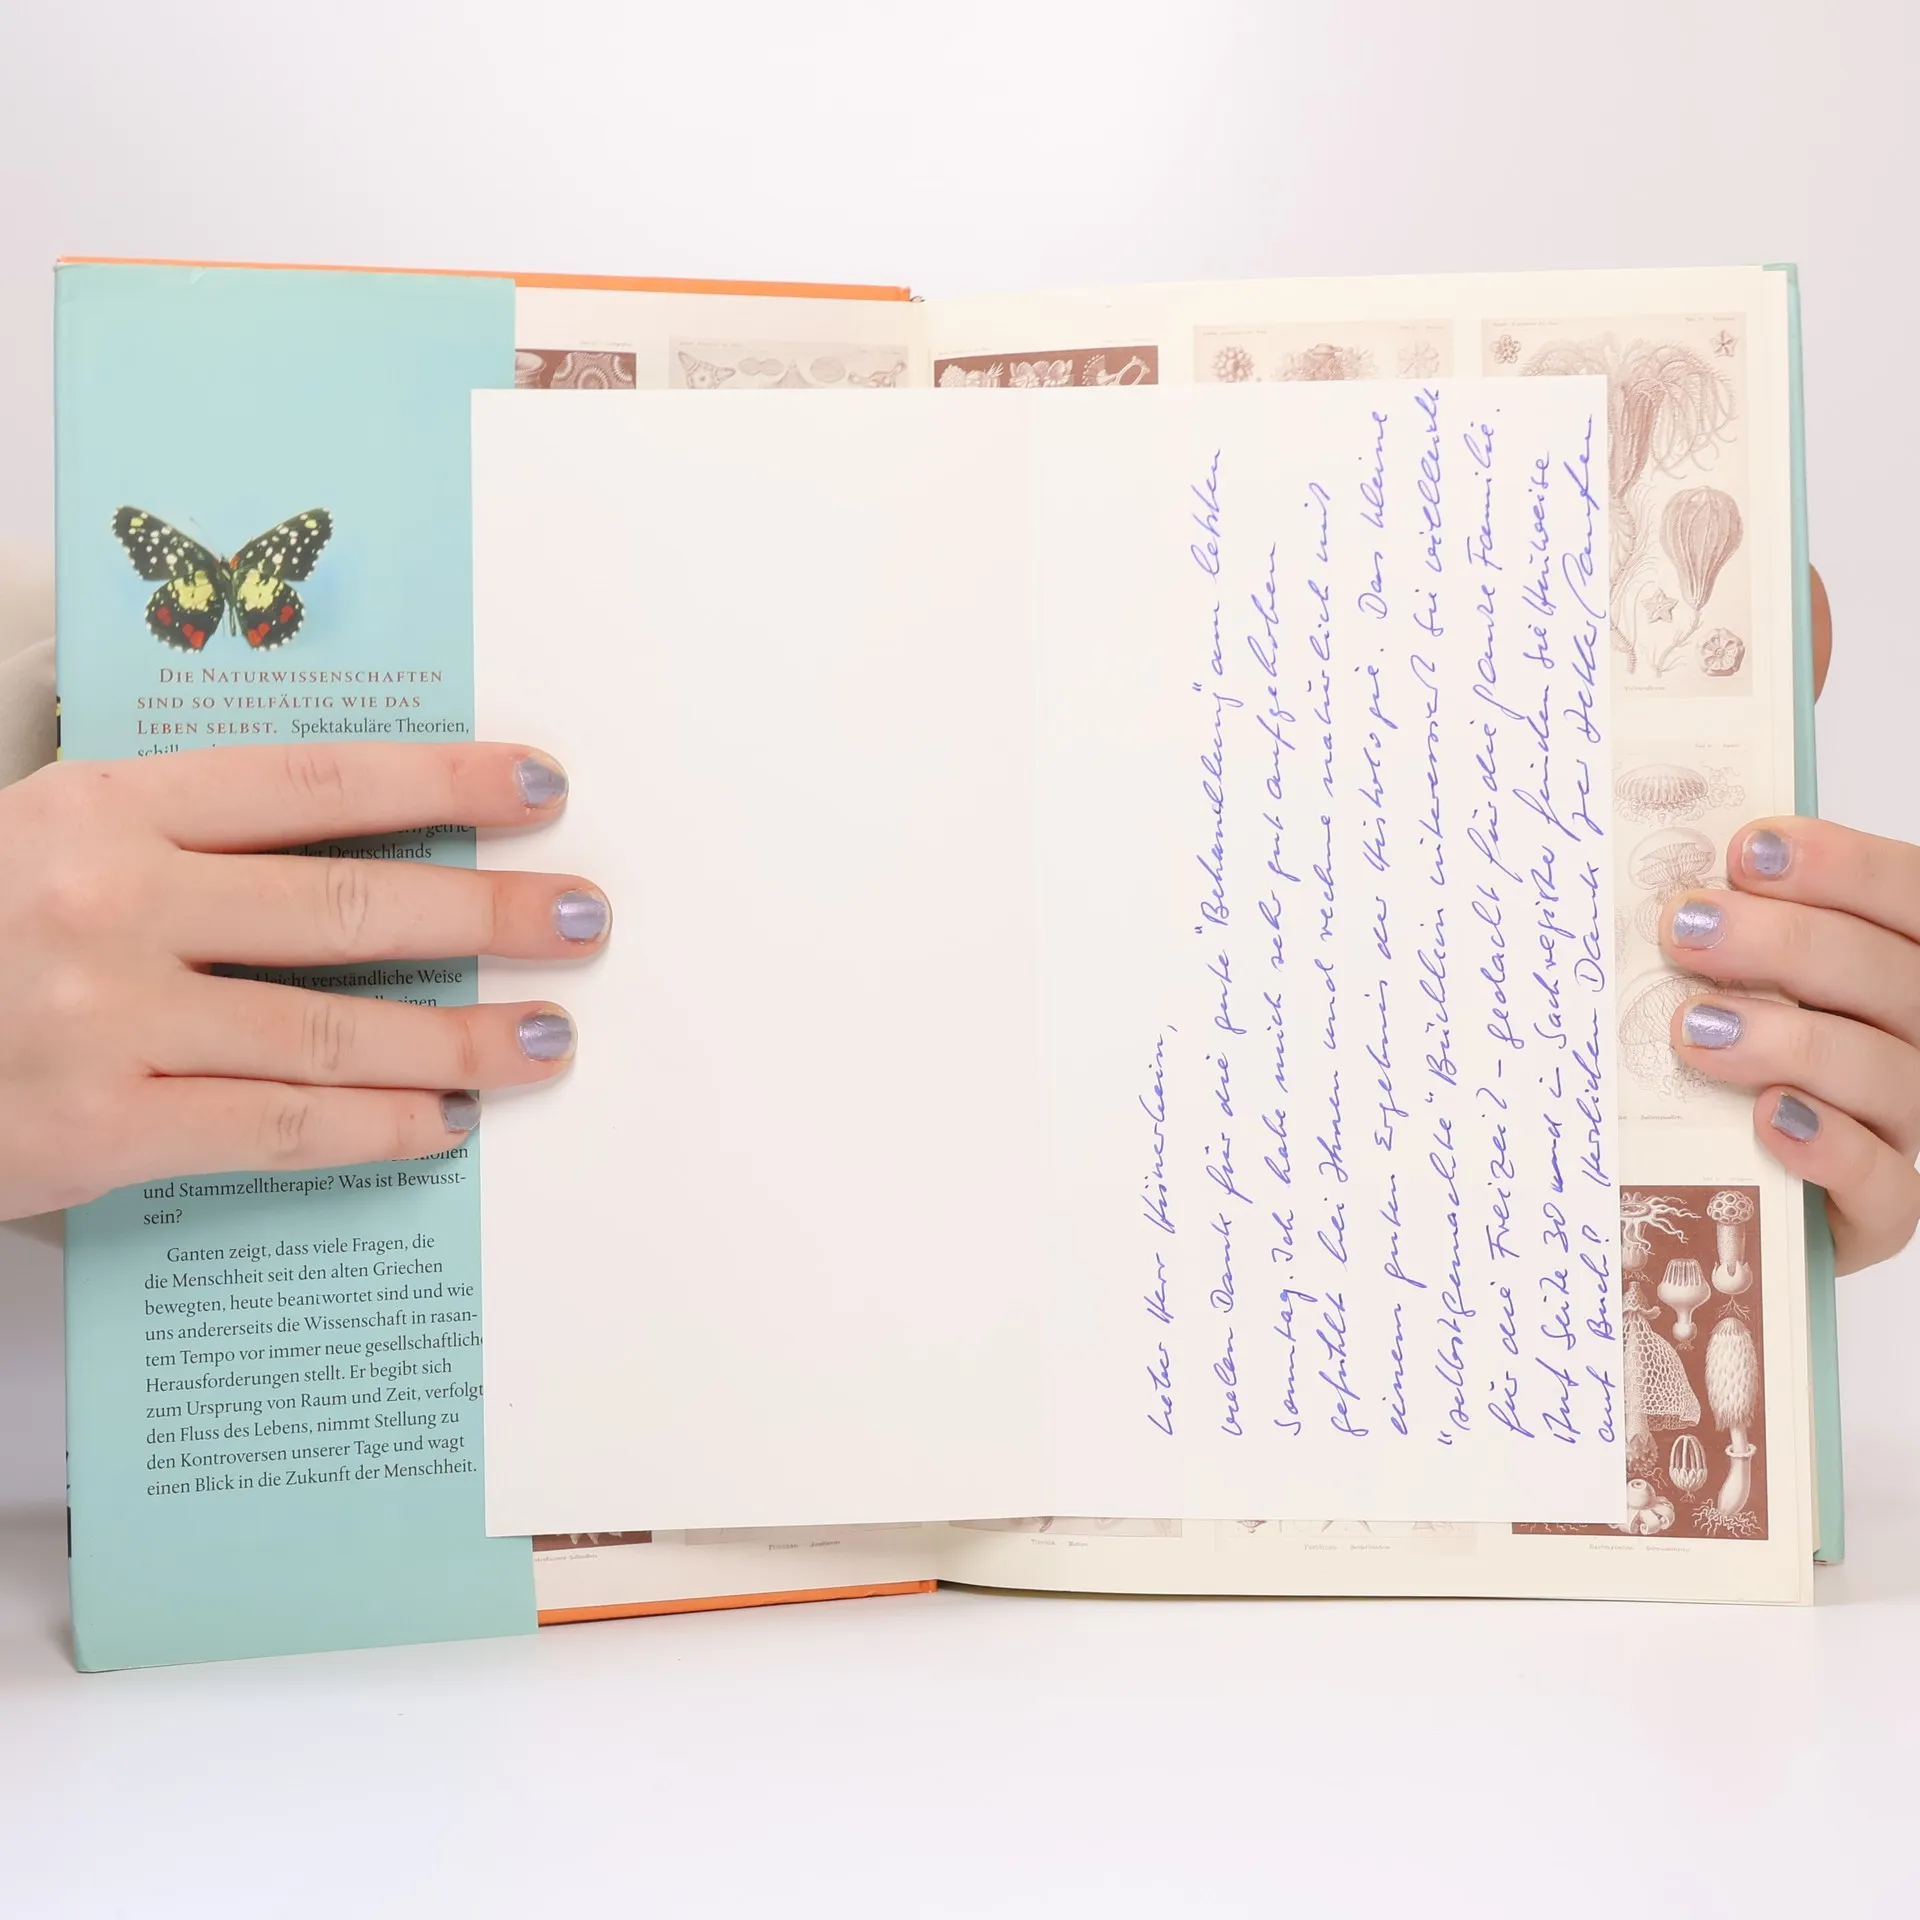 DIE NATURWISSENSCHAFTEN
SIND SO VIELFÄLTIG WIE DAS
LEBEN SELBST. Spektakuläre Theorien,
der Deutschlands
leicht verständliche Weise
und Stammzelltherapie? Was ist Bewusst-
sein?
Ganten zeigt, dass viele Fragen, die
die Menschheit seit den alten Griechen
bewegten, heute beantwortet sind und wie
uns andererseits die Wissenschaft in rasan-
tem Tempo vor immer neue gesellschaftlich
Herausforderungen stellt. Er begibt sich
zum Ursprung von Raum und Zeit, verfolgt
den Fluss des Lebens, nimmt Stellung zu
den Kontroversen unserer Tage und wagt
einen Blick in die Zukunft der Menschheit.
Lieber Herr
vielen Dank für die gute "Behandlung" am letzten
Sonntag. Ich habe mich sehr gut aufgehoben
gefühlt bei Ihnen und rechne natürlich mit
einem guten Ergebnis der Histologie. Das kleine
"selbstgemachte" Büchlein interessiert Sie vielleicht
für die Freizeit - gedacht für die ganze Familie.
Auf Seite 30 und i- Sachregister finden Sie Hinweise
auf Buch! Herzlichen Dank Ihr Detlev Ganten